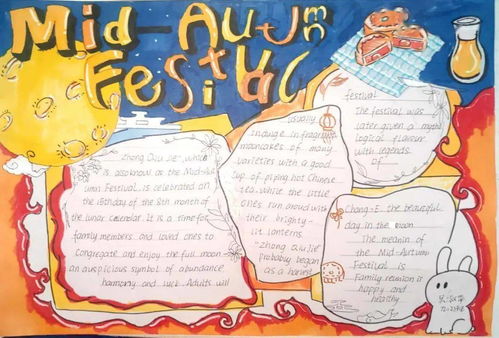 Mid-Autumn
Festival
"zhong Qiu Jie", which
is also know as the Mid-Aut
umn Festival, is celebrated on
the 15th day of the 8th month of
the lunar calendar. It is a time for
family members and loved ones to
Congregate and enjoy the full moon
an auspicious symbol of abundance
harmony and luck Adults will
usually
indulge in fragrant
mooncakes of many
varieties with a good
cup of piping hot Chinese
tea, while the little
ones run around with
their brightly-
lit lanterns.
"zhong qiu jie"
probably began
as a harvest
festival
the festival was
later given a mytho
logical flavour
with legends
of
Chang-E the beautiful
day in the moon
The meanin of
the Mid-Autumn
Festival is
Family reunion is
happy and
healthy